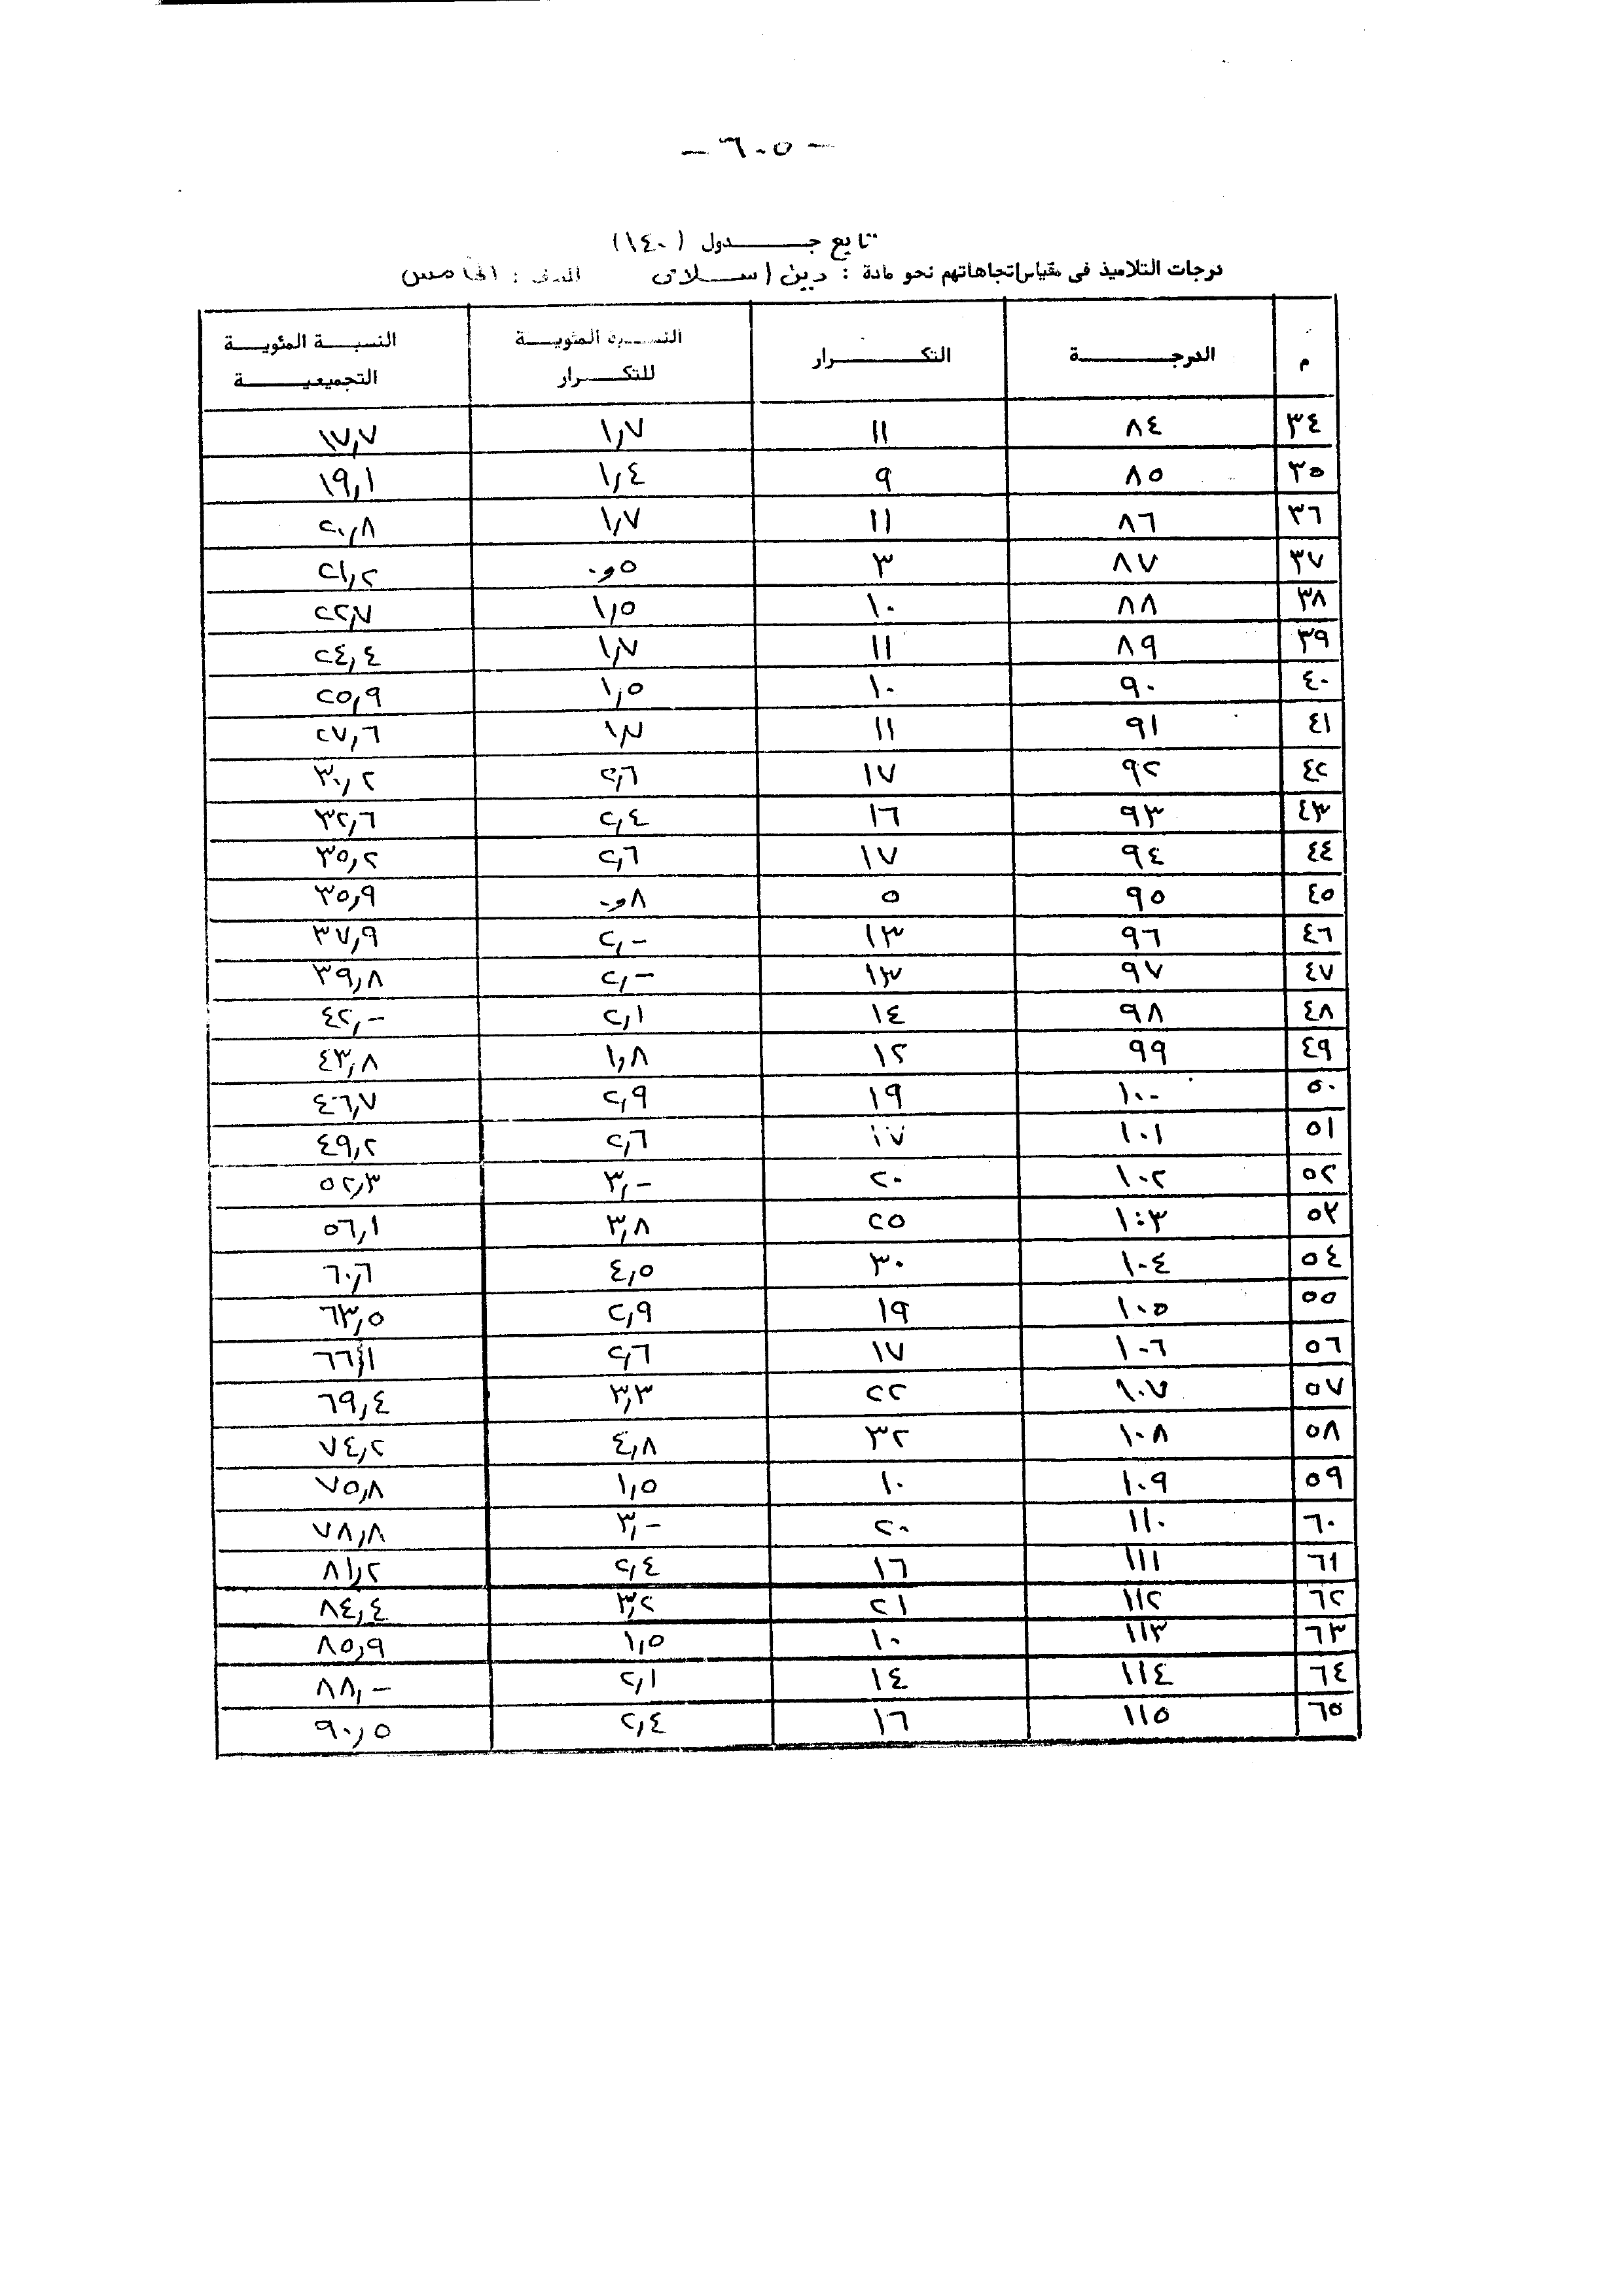 - ٦٠٥ -
تابع جدول (١٤٠)
درجات التلاميذ فى مقياس اتجاهاتهم نحو مادة : دين اسلامى الصف : الخامس
م الدرجة التكرار النسبة المئوية للتكرار النسبة المئوية التجميعية
٣٤ ٨٤ ١١ ١,٧ ١٧,٧
٣٥ ٨٥ ٩ ١,٤ ١٩,١
٣٦ ٨٦ ١١ ١,٧ ٢٠,٨
٣٧ ٨٧ ٣ ٠,٥ ٢١,٢
٣٨ ٨٨ ١٠ ١,٥ ٢٢,٧
٣٩ ٨٩ ١١ ١,٧ ٢٤,٤
٤٠ ٩٠ ١٠ ١,٥ ٢٥,٩
٤١ ٩١ ١١ ١,٧ ٢٧,٦
٤٢ ٩٢ ١٧ ٢,٦ ٣٠,٢
٤٣ ٩٣ ١٦ ٢,٤ ٣٢,٦
٤٤ ٩٤ ١٧ ٢,٦ ٣٥,٢
٤٥ ٩٥ ٥ ٠,٨ ٣٥,٩
٤٦ ٩٦ ١٣ ٢,- ٣٧,٩
٤٧ ٩٧ ١٣ ٢,- ٣٩,٨
٤٨ ٩٨ ١٤ ٢,١ ٤٢,-
٤٩ ٩٩ ١٢ ١,٨ ٤٣,٨
٥٠ ١٠٠ ١٩ ٢,٩ ٤٦,٧
٥١ ١٠١ ١٧ ٢,٦ ٤٩,٢
٥٢ ١٠٢ ٢٠ ٣,- ٥٢,٣
٥٣ ١٠٣ ٢٥ ٣,٨ ٥٦,١
٥٤ ١٠٤ ٣٠ ٤,٥ ٦٠,٦
٥٥ ١٠٥ ١٩ ٢,٩ ٦٣,٥
٥٦ ١٠٦ ١٧ ٢,٦ ٦٦,١
٥٧ ١٠٧ ٢٢ ٣,٣ ٦٩,٤
٥٨ ١٠٨ ٣٢ ٤,٨ ٧٤,٢
٥٩ ١٠٩ ١٠ ١,٥ ٧٥,٨
٦٠ ١١٠ ٢٠ ٣,- ٧٨,٨
٦١ ١١١ ١٦ ٢,٤ ٨١,٢
٦٢ ١١٢ ٢١ ٣,٢ ٨٤,٤
٦٣ ١١٣ ١٠ ١,٥ ٨٥,٩
٦٤ ١١٤ ١٤ ٢,١ ٨٨,-
٦٥ ١١٥ ١٦ ٢,٤ ٩٠,٥